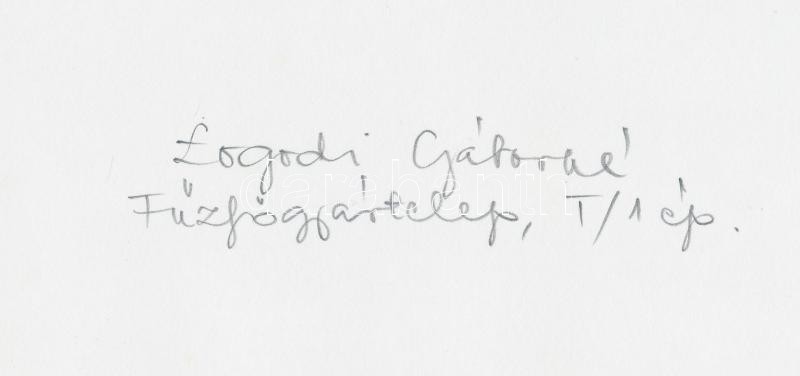 Logodi Gáborné
Fűzfőgyártelep, T/1 ép.
darabanth